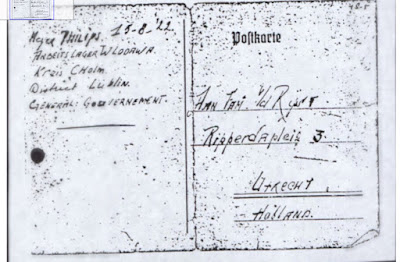 Meyer PHILIPS. 15-8-'42
ARBEITSLAGER WLODAWA.
KREIS CHOLM.
District Lublin.
GENERAL: GOUVERNEMENT.
Postkarte
Aan Fam. v/d Rijst
Ripperdaplein 3
UTRECHT.
HOLLAND.